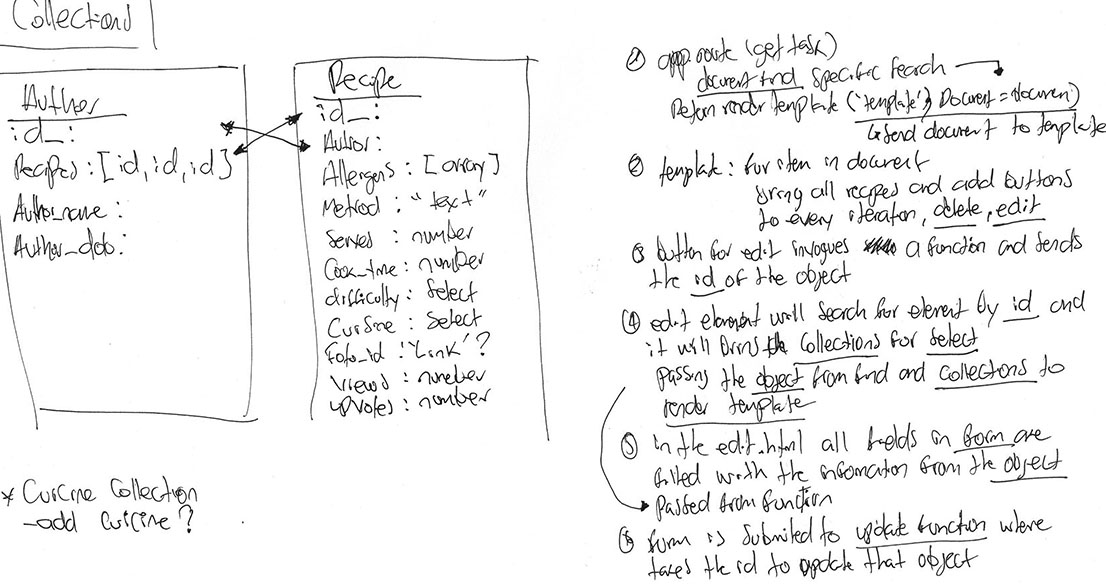 Collections
Author
id_:
Recipes : [id, id, id]
Author_name :
Author_dob :
Recipe
id_:
Author:
Allergens : [array]
Method : "text"
Serves : number
Cook_time : number
difficulty : Select
Cuisine : Select
Foto_id : 'Link' ?
Views : number
upvotes : number
* Cuicine Collection
-add cuicine ?
1 app route (get task)
document find specific search
Return render template ('template', Document = documen)
send document to template
2 template : for item in document
bring all recipes and add buttons
to every iteration, delete, edit
3 button for edit invoques a function and sends
the id of the object
4 edit element will search for element by id and
it will bring the collections for select
Passing the object from find and collections to
render template
5 in the edit.html all fields in form are
filled with the information from the object
Passed from function
6 form is submited to update function where
takes the id to update that object